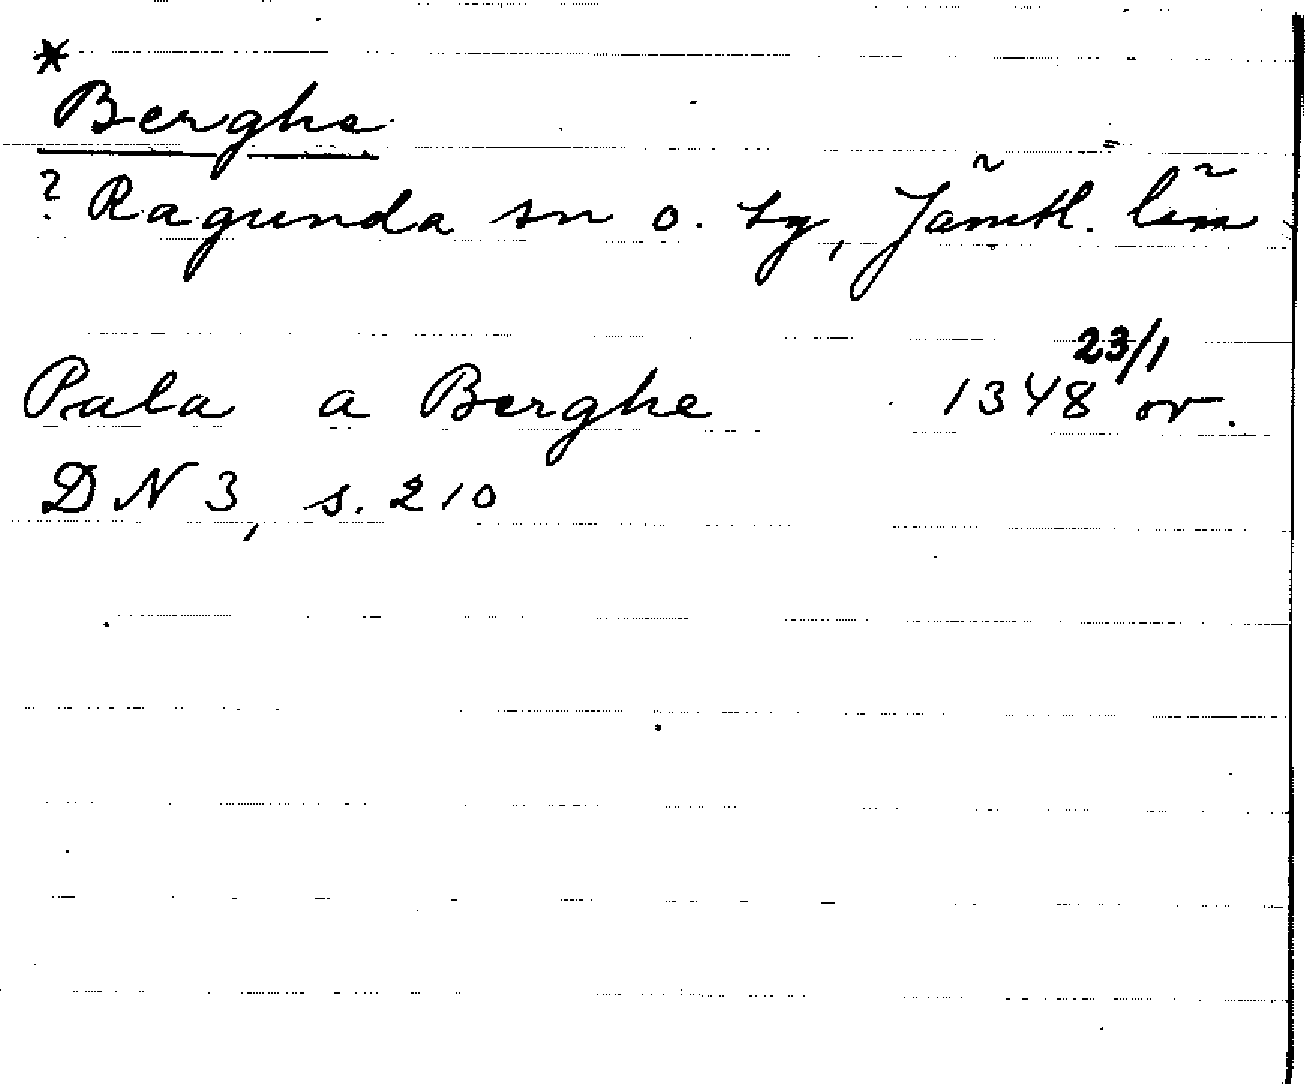 *
Berghe
? Ragunda sn o. tg, Jämtl. län
Pala a Berghe 1348 23/1 or.
DN 3, s. 210